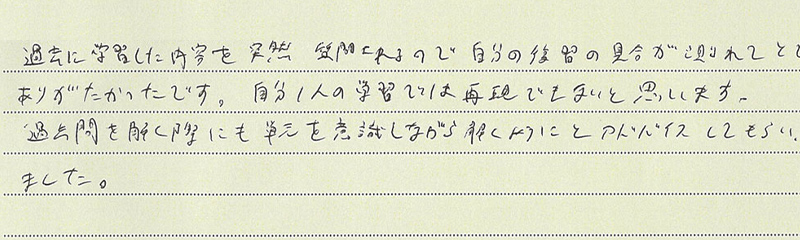 過去に学習した内容を突然質問されるので自分の復習の具合が測れてとて
ありがたかったです。自分1人の学習では再現できないと思います。
過去問を解く際にも単元を意識しながら解くようにとアドバイスしてもらい、
ました。